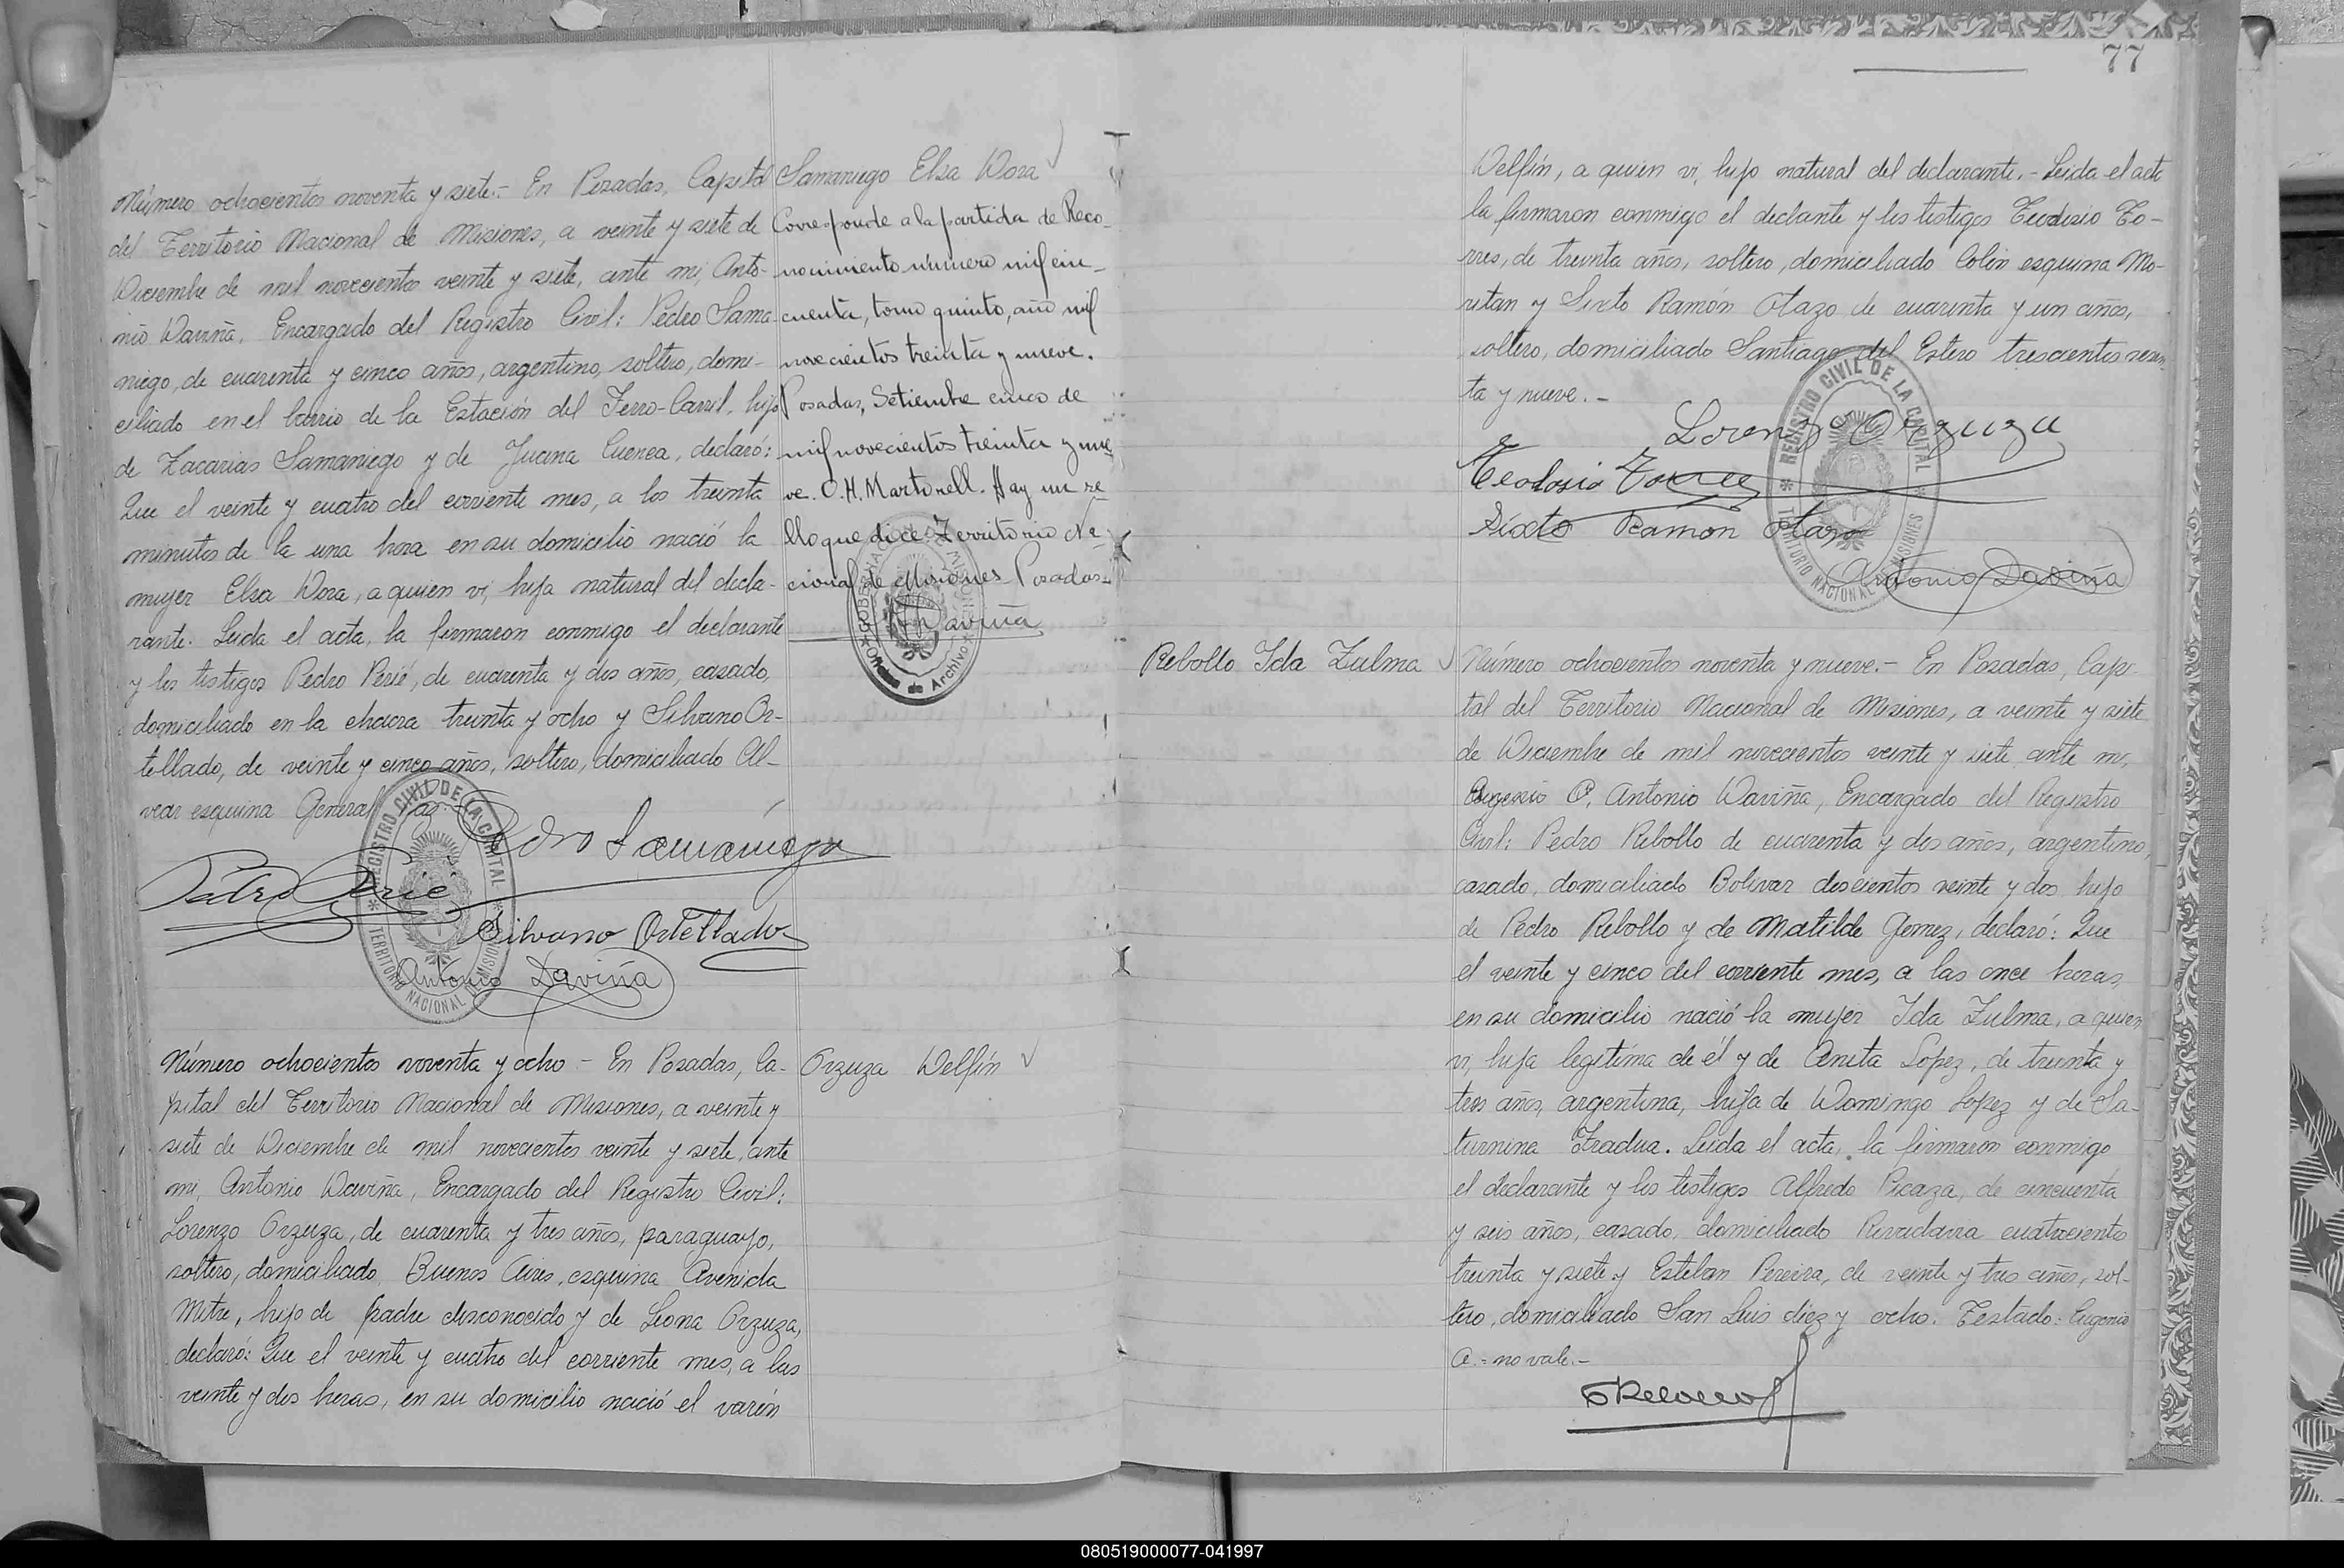 Número ochocientos noventa y siete.- En Posadas, Capital
del Territorio Nacional de Misiones, a veinte y siete de
Diciembre de mil novecientos veinte y siete, ante mi, Anto-
nio Daviña, Encargado del Registro Civil: Pedro Sama-
niego, de cuarenta y cinco años, argentino, soltero, domi-
ciliado en el barrio de la Estación del Ferro-Carril, hijo
de Zacarias Samaniego y de Juana Cuenca, declaró:
Que el veinte y cuatro del corriente mes, a los treinta
minutos de la una hora en su domicilio nació la
mujer Elsa Dora, a quien vi, hija natural del decla-
rante. Leida el acta, la firmaron conmigo el declarante
y los testigos Pedro Perié, de cuarenta y dos años, casado,
domiciliado en la chacra treinta y ocho y Silvano Or-
tellado, de veinte y cinco años, soltero, domiciliado Al-
vear esquina General Paz.-
Pedro Samaniego
Pedro Perié
Silvano Ortellado
Antonio Daviña
REGISTRO CIVIL DE LA CAPITAL
TERRITORIO NACIONAL DE MISIONES
Samaniego Elsa Dora
Corresponde a la partida de Reco-
nocimiento número mil cin-
cuenta, tomo quinto, año mil
novecientos treinta y nueve.
Posadas, Setiembre cinco de
mil novecientos treinta y nue
ve. O.H. Martorell. Hay un se
llo que dice: Territorio Na-
cional de Misiones - Posadas.-
A Daviña
GOBERNACION DE MISIONES
Oficina de Archivo
Número ochocientos noventa y ocho - En Posadas, Ca-
pital del Territorio Nacional de Misiones, a veinte y
siete de Diciembre de mil novecientos veinte y siete, ante
mi, Antonio Daviña, Encargado del Registro Civil:
Lorenzo Orzuza, de cuarenta y tres años, paraguayo,
soltero, domiciliado Buenos Aires, esquina Avenida
Mitre, hijo de padre desconocido y de Leona Orzuza,
declaró: Que el veinte y cuatro del corriente mes, a las
veinte y dos horas, en su domicilio nació el varón
Orzuza Delfín
77
Delfín, a quien vi, hijo natural del declarante.- Leida el acta
la firmaron conmigo el declante y los testigos Teodosio To-
rres, de treinta años, soltero, domiciliado Colón esquina Mo-
ritan y Sixto Ramón Otazo de cuarenta y un años,
soltero, domiciliado Santiago del Estero trescientos sesen
ta y nueve.-
Lorenzo Orzuza
Teodosio Torres
Sixto Ramon Otazo
Antonio Daviña
REGISTRO CIVIL DE LA CAPITAL
TERRITORIO NACIONAL MISIONES
Rebollo Ida Zulma
Número ochocientos noventa y nueve.- En Posadas, Capi-
tal del Territorio Nacional de Misiones, a veinte y siete
de Diciembre de mil novecientos veinte y siete ante mi,
Eugenio A. Antonio Daviña, Encargado del Registro
Civil: Pedro Rebollo de cuarenta y dos años, argentino,
casado, domiciliado Bolivar doscientos veinte y dos hijo
de Pedro Rebollo y de Matilde Gomez, declaró: Que
el veinte y cinco del corriente mes, a las once horas,
en su domicilio nació la mujer Ida Zulma, a quien
vi, hija legítima de él y de Anita Lopez, de treinta y
tres años, argentina, hija de Domingo Lopez y de Sa-
turnina Fradua. Leida el acta, la firmaron conmigo
el declarante y los testigos Alfredo Picaza, de cincuenta
y seis años, casado, domiciliado Rivadavia cuatrocientos
treinta y siete y Esteban Pereira, de veinte y tres años, sol-
tero, domiciliado San Luis diez y ocho. Testado: Eugenio
A.- no vale.-
080519000077-041997